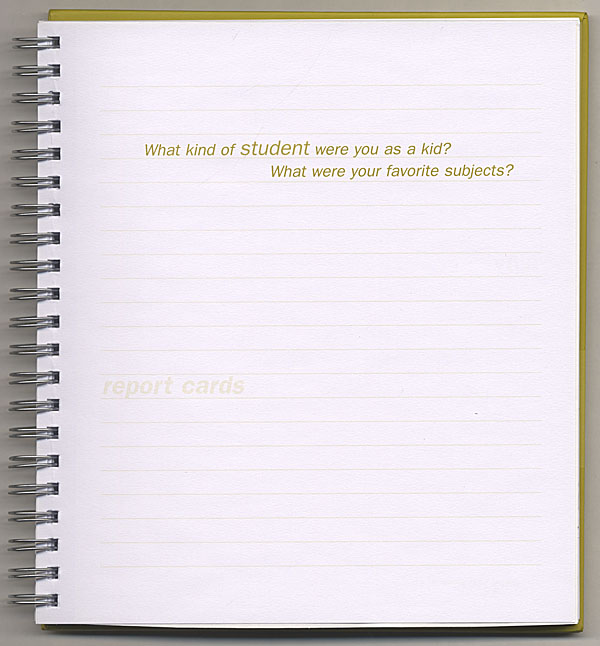 What kind of student were you as a kid?
What were your favorite subjects?
report cards